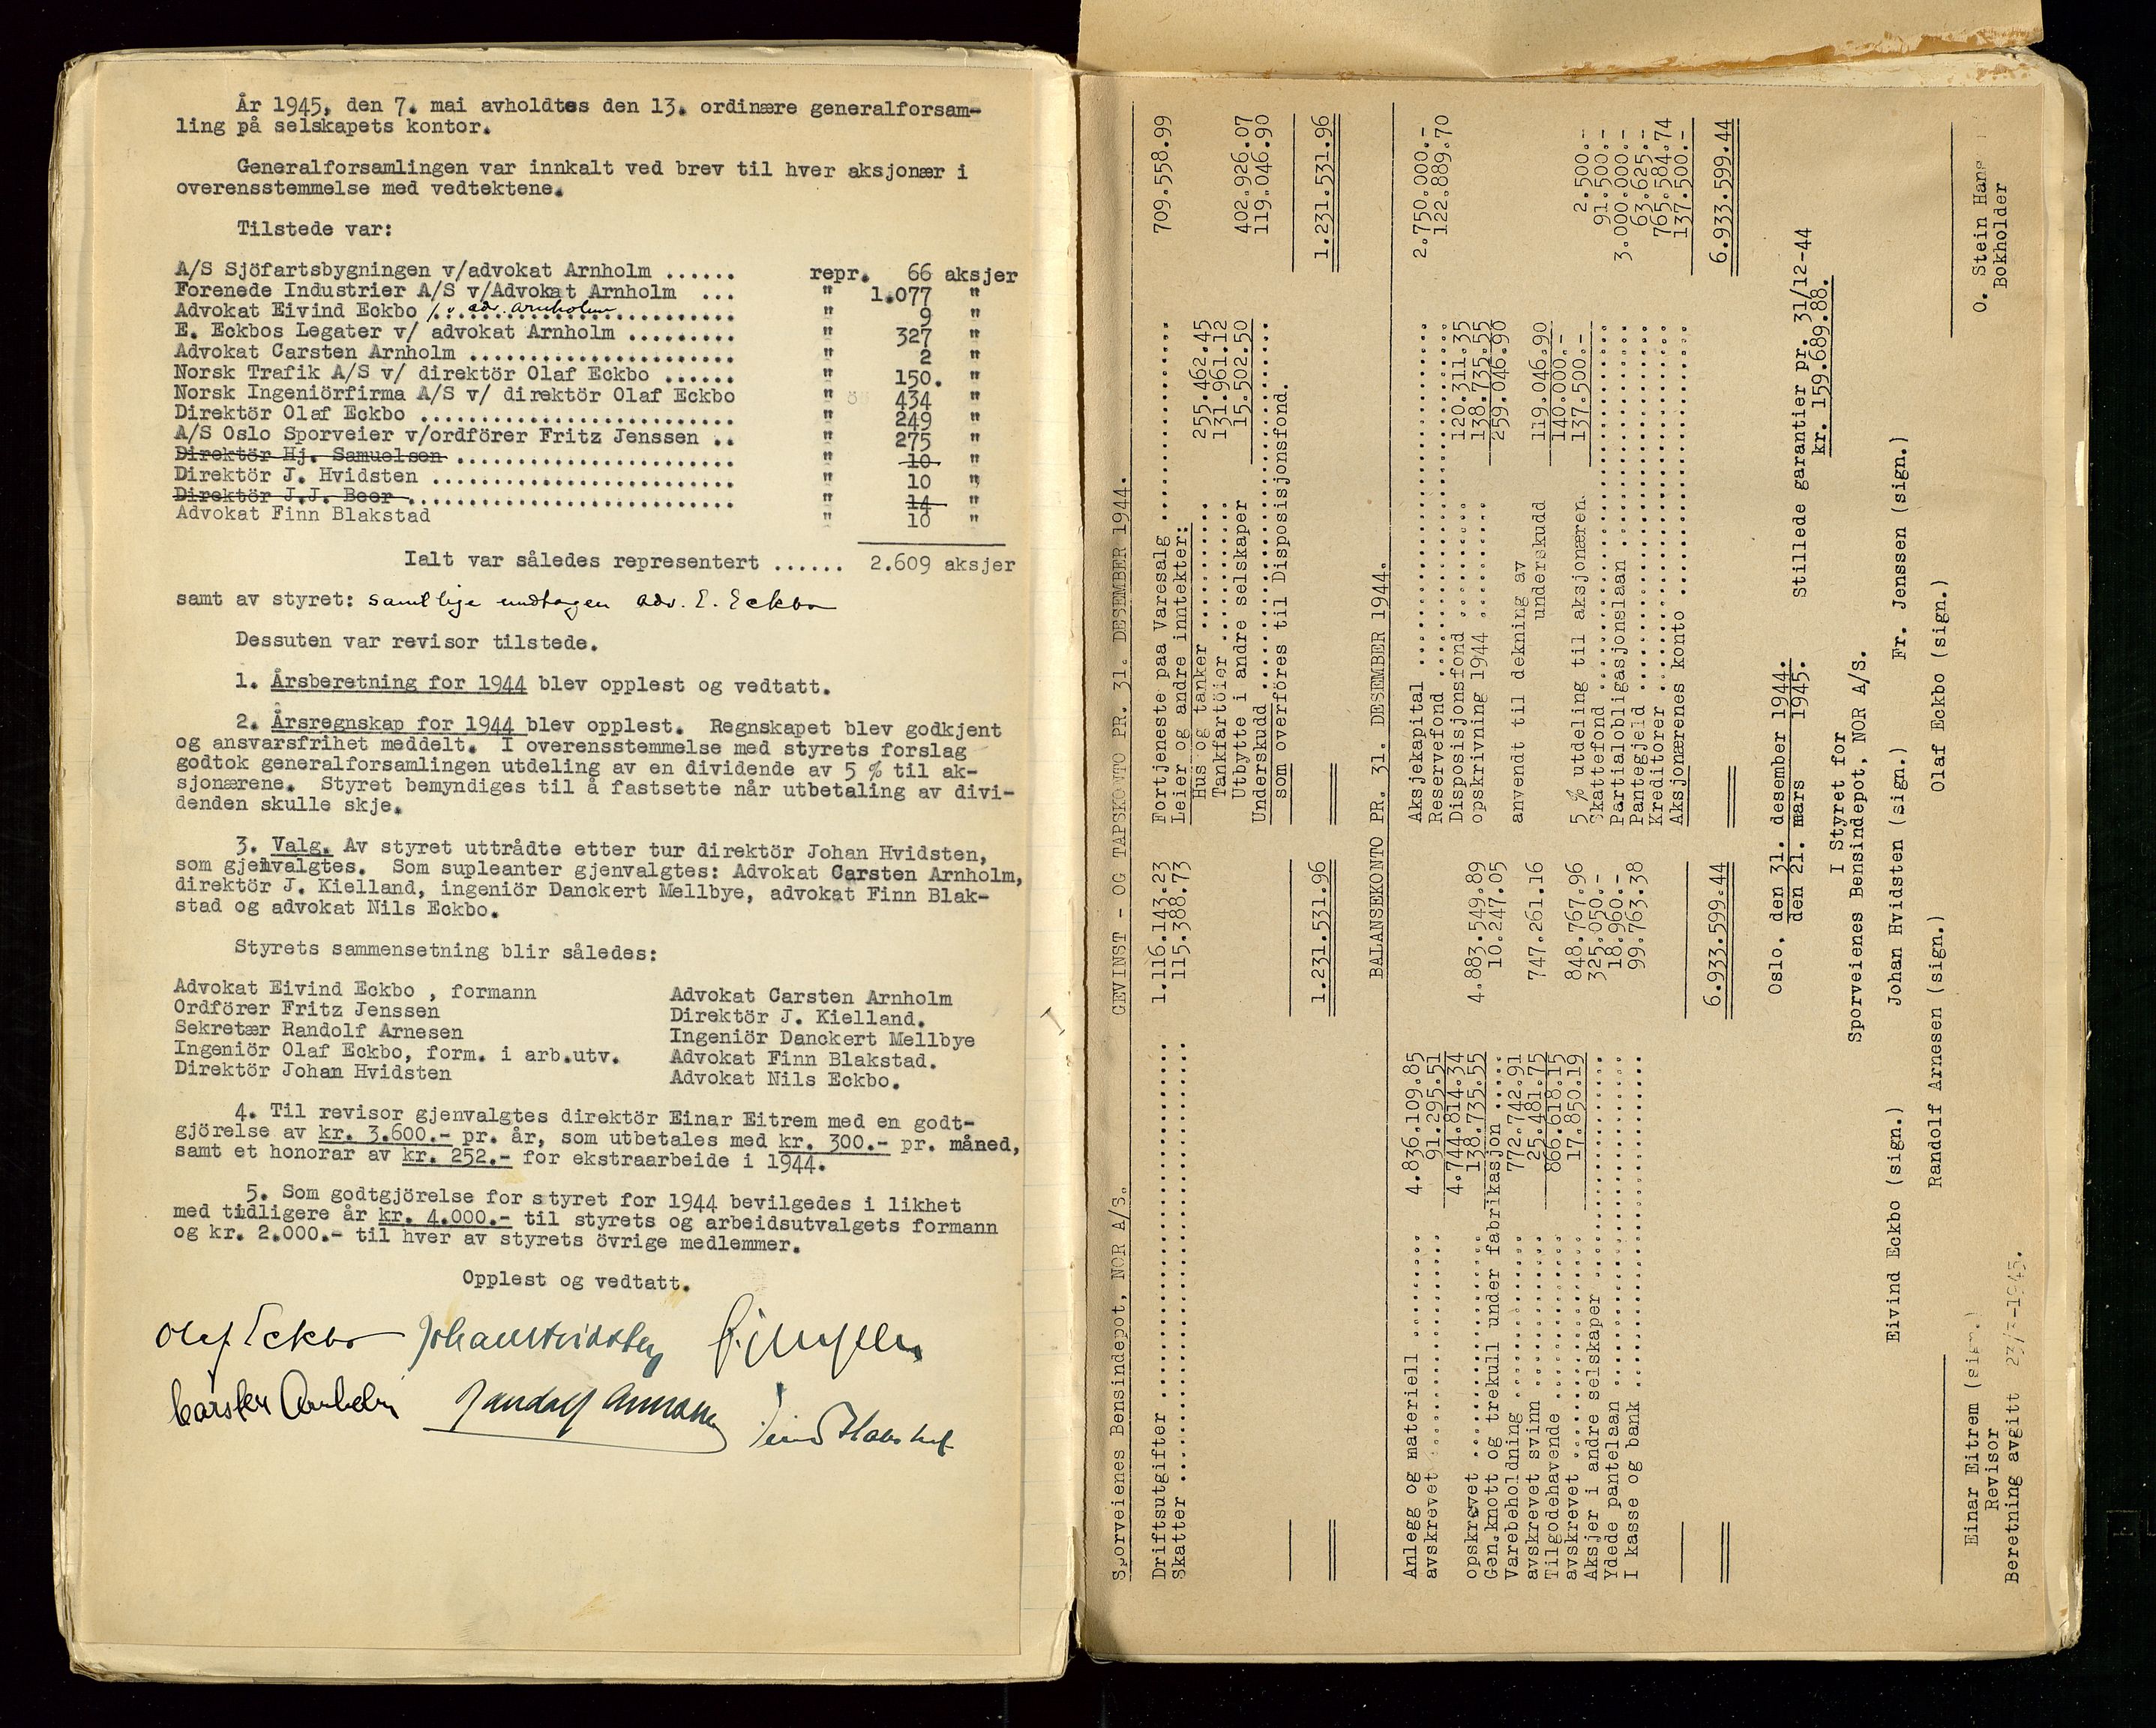 År 1945, den 7. mai avholdtes den 13. ordinære generalforsam-
ling på selskapets kontor.
Generalforsamlingen var innkalt ved brev til hver aksjonær i
overensstemmelse med vedtektene.
Tilstede var:
A/S Sjöfartsbygningen v/advokat Arnholm ...... repr. 66 aksjer
Forenede Industrier A/S v/Advokat Arnholm ... " 1.077 "
Advokat Eivind Eckbo / v adv. Arnholm .......... " 9 "
E. Eckbos Legater v/ advokat Arnholm ......... " 327 "
Advokat Carsten Arnholm ...................... " 2 "
Norsk Trafik A/S v/ direktör Olaf Eckbo ...... " 150. "
Norsk Ingeniörfirma A/S v/ direktör Olaf Eckbo " 434 "
Direktör Olaf Eckbo .......................... " 249 "
A/S Oslo Sporveier v/ordförer Fritz Jenssen .. " 275 "
Direktör Hj. Samuelsen ....................... " 10 "
Direktör J. Hvidsten ......................... " 10 "
Direktör J.J. Beer ........................... " 14 "
Advokat Finn Blakstad " 10 "
Ialt var således representert ...... 2.609 aksjer
samt av styret: samtlige undtagen adv. E. Eckbo
Dessuten var revisor tilstede.
1. Årsberetning for 1944 blev opplest og vedtatt.
2. Årsregnskap for 1944 blev opplest. Regnskapet blev godkjent
og ansvarsfrihet meddelt. I overensstemmelse med styrets forslag
godtok generalforsamlingen utdeling av en dividende av 5 % til ak-
sjonærene. Styret bemyndiges til å fastsette når utbetaling av divi-
denden skulle skje.
3. Valg. Av styret uttrådte etter tur direktör Johan Hvidsten,
som gjenvalgtes. Som supleanter gjenvalgtes: Advokat Carsten Arnholm,
direktör J. Kielland, ingeniör Danckert Mellbye, advokat Finn Blak-
stad og advokat Nils Eckbo.
Styrets sammensetning blir således:
Advokat Eivind Eckbo , formann Advokat Carsten Arnholm
Ordförer Fritz Jenssen Direktör J. Kielland.
Sekretær Randolf Arnesen Ingeniör Danckert Mellbye
Ingeniör Olaf Eckbo, form. i arb.utv. Advokat Finn Blakstad.
Direktör Johan Hvidsten Advokat Nils Eckbo.
4. Til revisor gjenvalgtes direktör Einar Eitrem med en godt-
gjörelse av kr. 3.600.- pr. år, som utbetales med kr. 300.- pr. måned,
samt et honorar av kr. 252.- for ekstraarbeide i 1944.
5. Som godtgjörelse for styret for 1944 bevilgedes i likhet
med tidligere år kr. 4.000.- til styrets og arbeidsutvalgets formann
og kr. 2.000.- til hver av styrets övrige medlemmer.
Opplest og vedtatt.
Olaf Eckbo Johan Hvidsten
Carsten Arnholm Randolf Arnesen
Sporveienes Bensindepot, NOR A/S. GEVINST - OG TAPSKONTO PR. 31. DESEMBER 1944.
Driftsutgifter .......... 1.116.143.23 Fortjeneste paa Varesalg .......... 709.558.99
Skatter .......... 115.388.73 Leier og andre inntekter:
Hus og tanker .......... 255.462.45
Tankfartöier .......... 131.961.12
Utbytte i andre selskaper 15.502.50 402.926.07
Underskudd .......... 119.046.90
som overföres til Disposisjonsfond.
1.231.531.96 1.231.531.96
BALANSEKONTO PR. 31. DESEMBER 1944.
Anlegg og materiell .......... 4.836.109.85 Aksjekapital .......... 2.750.000.-
avskrevet .......... 91.295.51 Reservefond .......... 122.889.70
4.744.814.34 Disposisjonsfond .......... 120.311.35
opskrevet .......... 138.735.55 4.883.549.89 opskrivning 1944 .......... 138.735.55
Gen.knott og trekull under fabrikasjon ..... 10.247.05 259.046.90
Varebeholdning .......... 772.742.91 anvendt til dekning av
avskrevet svinn .......... 25.481.75 747.261.16 underskudd 119.046.90
Tilgodehavende .......... 866.618.15 140.000.-
avskrevet .......... 17.850.19 848.767.96 5 % utdeling til aksjonæren. 137.500.- 2.500.--
Aksjer i andre selskaper .......... 325.050.- Skattefond .......... 91.500.--
Ydede pantelaan .......... 18.960.- Partialobligasjonslaan .......... 3.000.000.--
I kasse og bank .......... 99.763.38 Pantegjeld .......... 63.625.--
Kreditorer .......... 765.584.74
Aksjonærenes konto .......... 137.500.--
6.933.599.44 6.933.599.44
Oslo. den 31. desember 1944. Stillede garantier pr. 31/12-44
den 21. mars 1945. kr. 159.689.88.
I Styret for
Sporveienes Bensindepot, NOR A/S.
Eivind Eckbo (sign.) Johan Hvidsten (sign.) Fr. Jenssen (sign.)
Randolf Arnesen (sign.) Olaf Eckbo (sign.)
Einar Eitrem (sign.) O. Stein Hans
Revisor Bokholder
Beretning avgitt 23/3-1945.